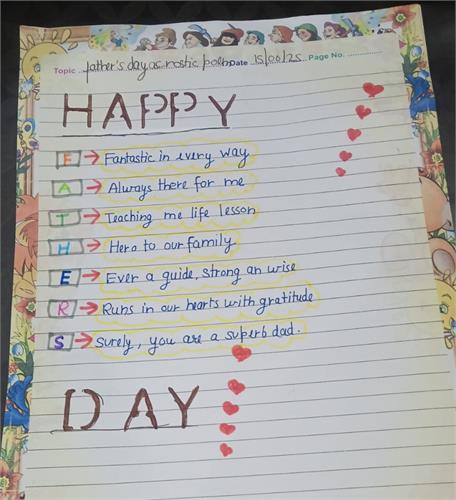 Topic father's day acrostic poem Date 15/06/25 Page No.
HAPPY
F → Fantastic in every way
A → Always there for me
T → Teaching me life lesson
H → Hero to our family
E → Ever a guide, strong an wise
R → Runs in our hearts with gratitude
S → surely, you are a superb dad.
DAY